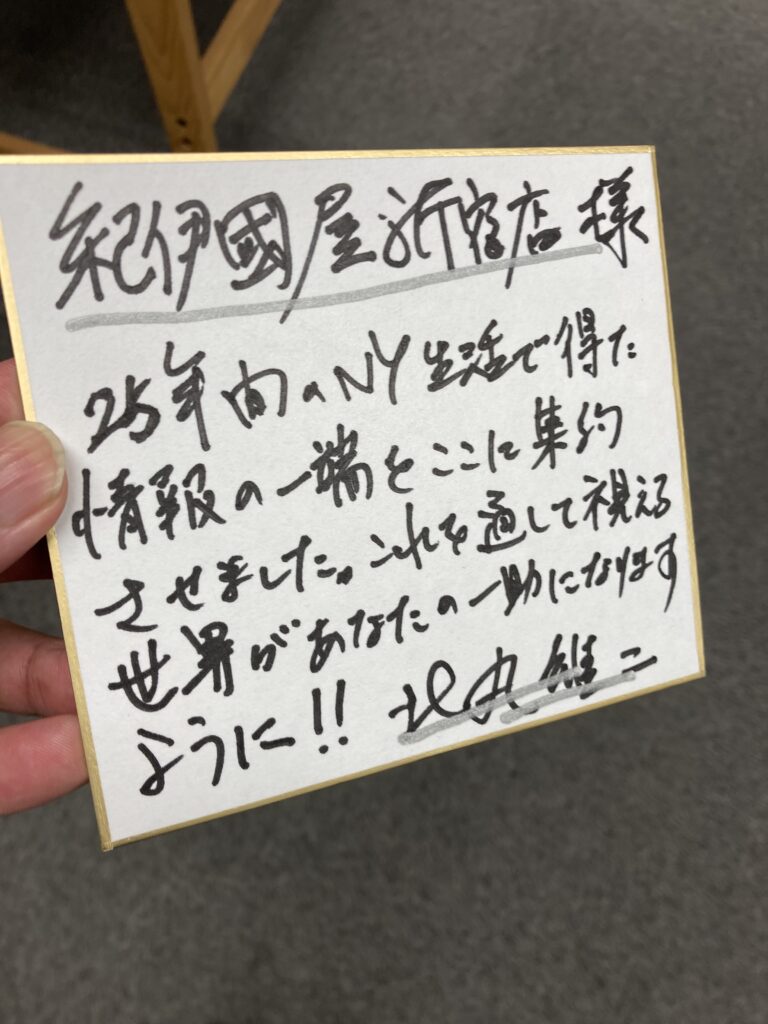 紀伊國屋新宿店様
25年間のNY生活で得た
情報の一端をここに集約
させました。これを通して視える
世界があなたの一助になります
ように!! 北丸雄二